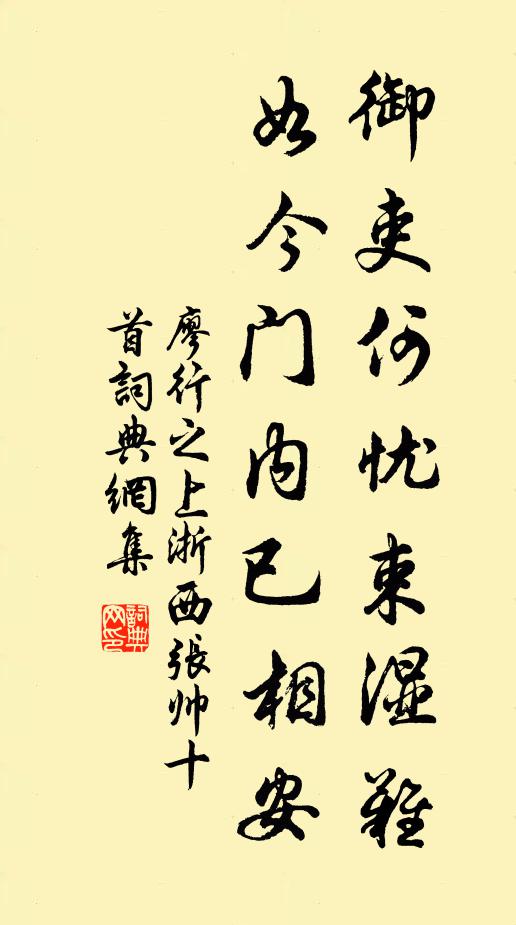 御吏何忧束湿难
如今门内已相安
廖行之上浙西張帅十
首詞典網集
詞典网印